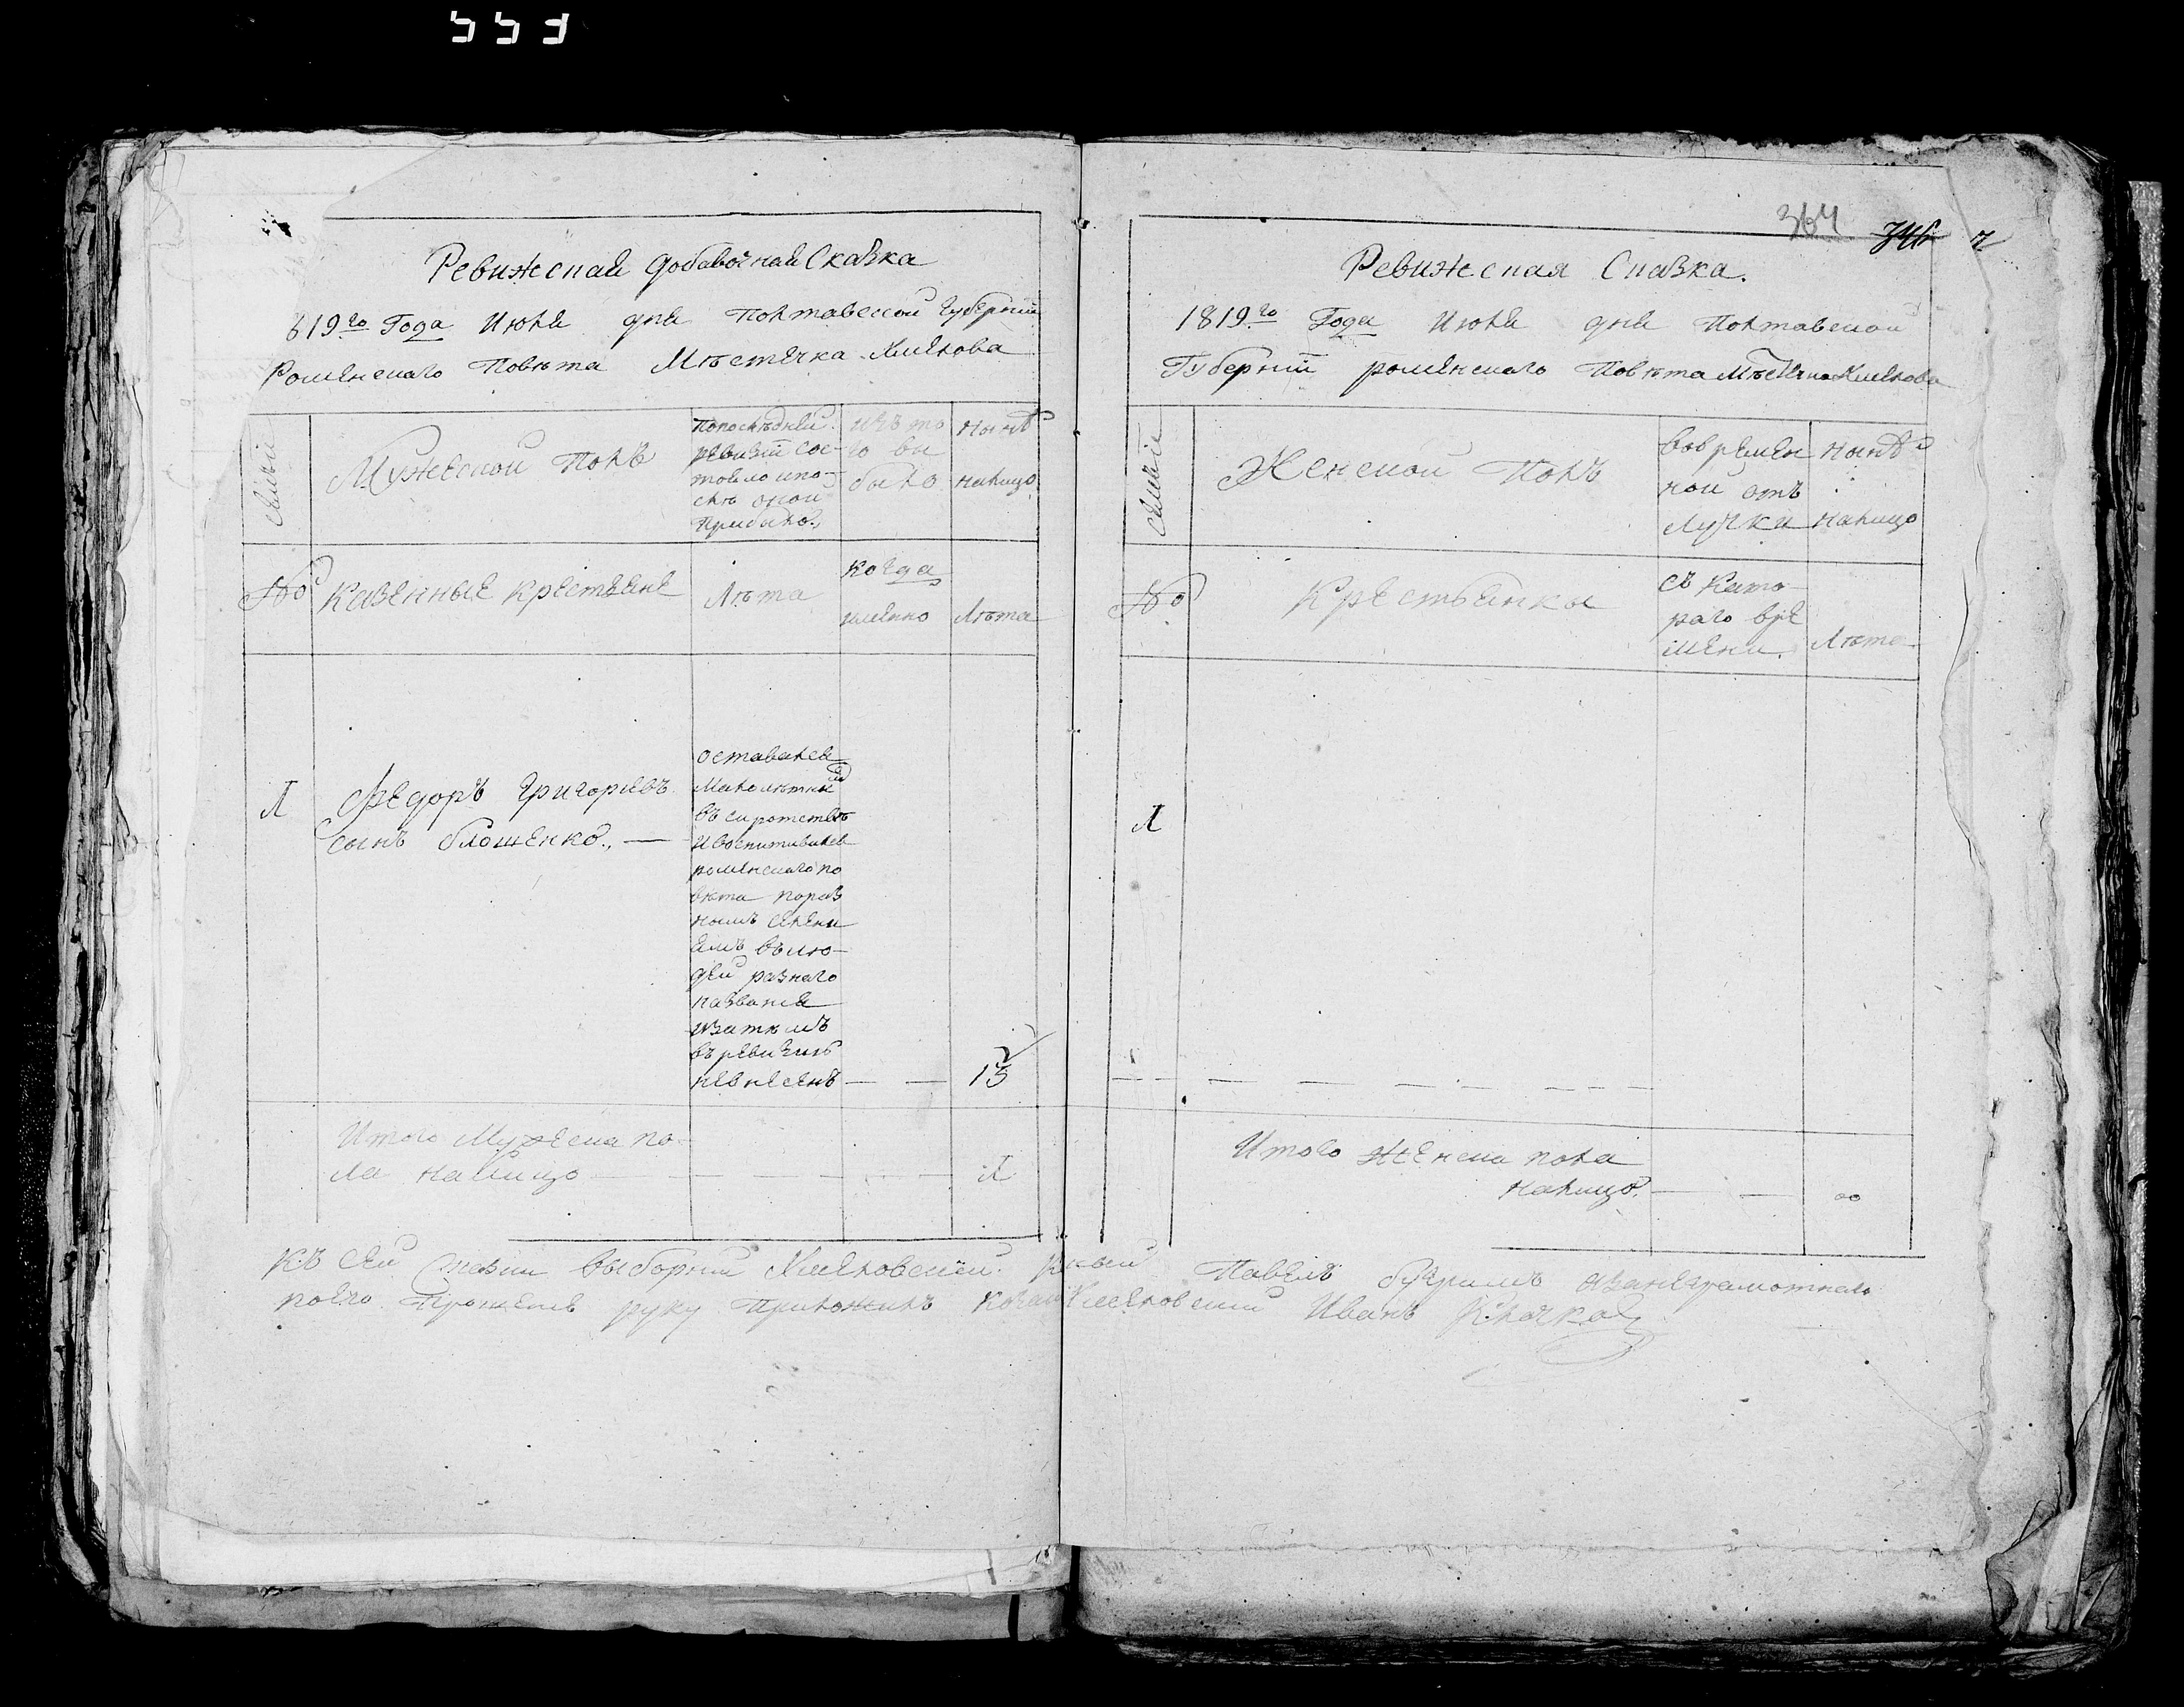 Ревижская добавочная Сказка
819го Года Июня дня Полтавской Губернии
Роменскаго Повѣта Мѣстечка Хмелова
семьи
Мужеской Полъ
Попослѣдней
ревизіи сос-
тояло ипо-
слѣ оной
Прибыло.
изъ то
го вы
было
нынѣ
налицо
№
Казенные крестьяне
Лѣта
когда
имянно
Лѣта
1
Федоръ Григорьевъ
сынъ блощенко. —
оставался
Малолѣтны
въ сиротствѣ
ивоспитывался
роменскаго по
вѣта поров
нымъ селени
ямъ въ лю-
дей разнаго
названія
изатѣмъ
въ ревизию
невнесенъ — —
15
Итого Мужеска по-
ла налицо
1
364
746
7
Ревижская Сказка.
1819го Года Июня дня Полтавской
Губерніи роменскаго Повѣта Мѣстечка Хмелова
семьи
Женской Полъ
вовремен
ной отъ
лучки
нынѣ
налицо
№
Крестьянки
съ Кото-
раго вре
мени.
Лѣта
1
Итого женска пола
налицо. — —
00
Къ сей сказки выборній Хмеловскій Павелъ аванеграмотнаго
поего Прошенію руку Приложилъ Хмеловский Иванъ Клочко